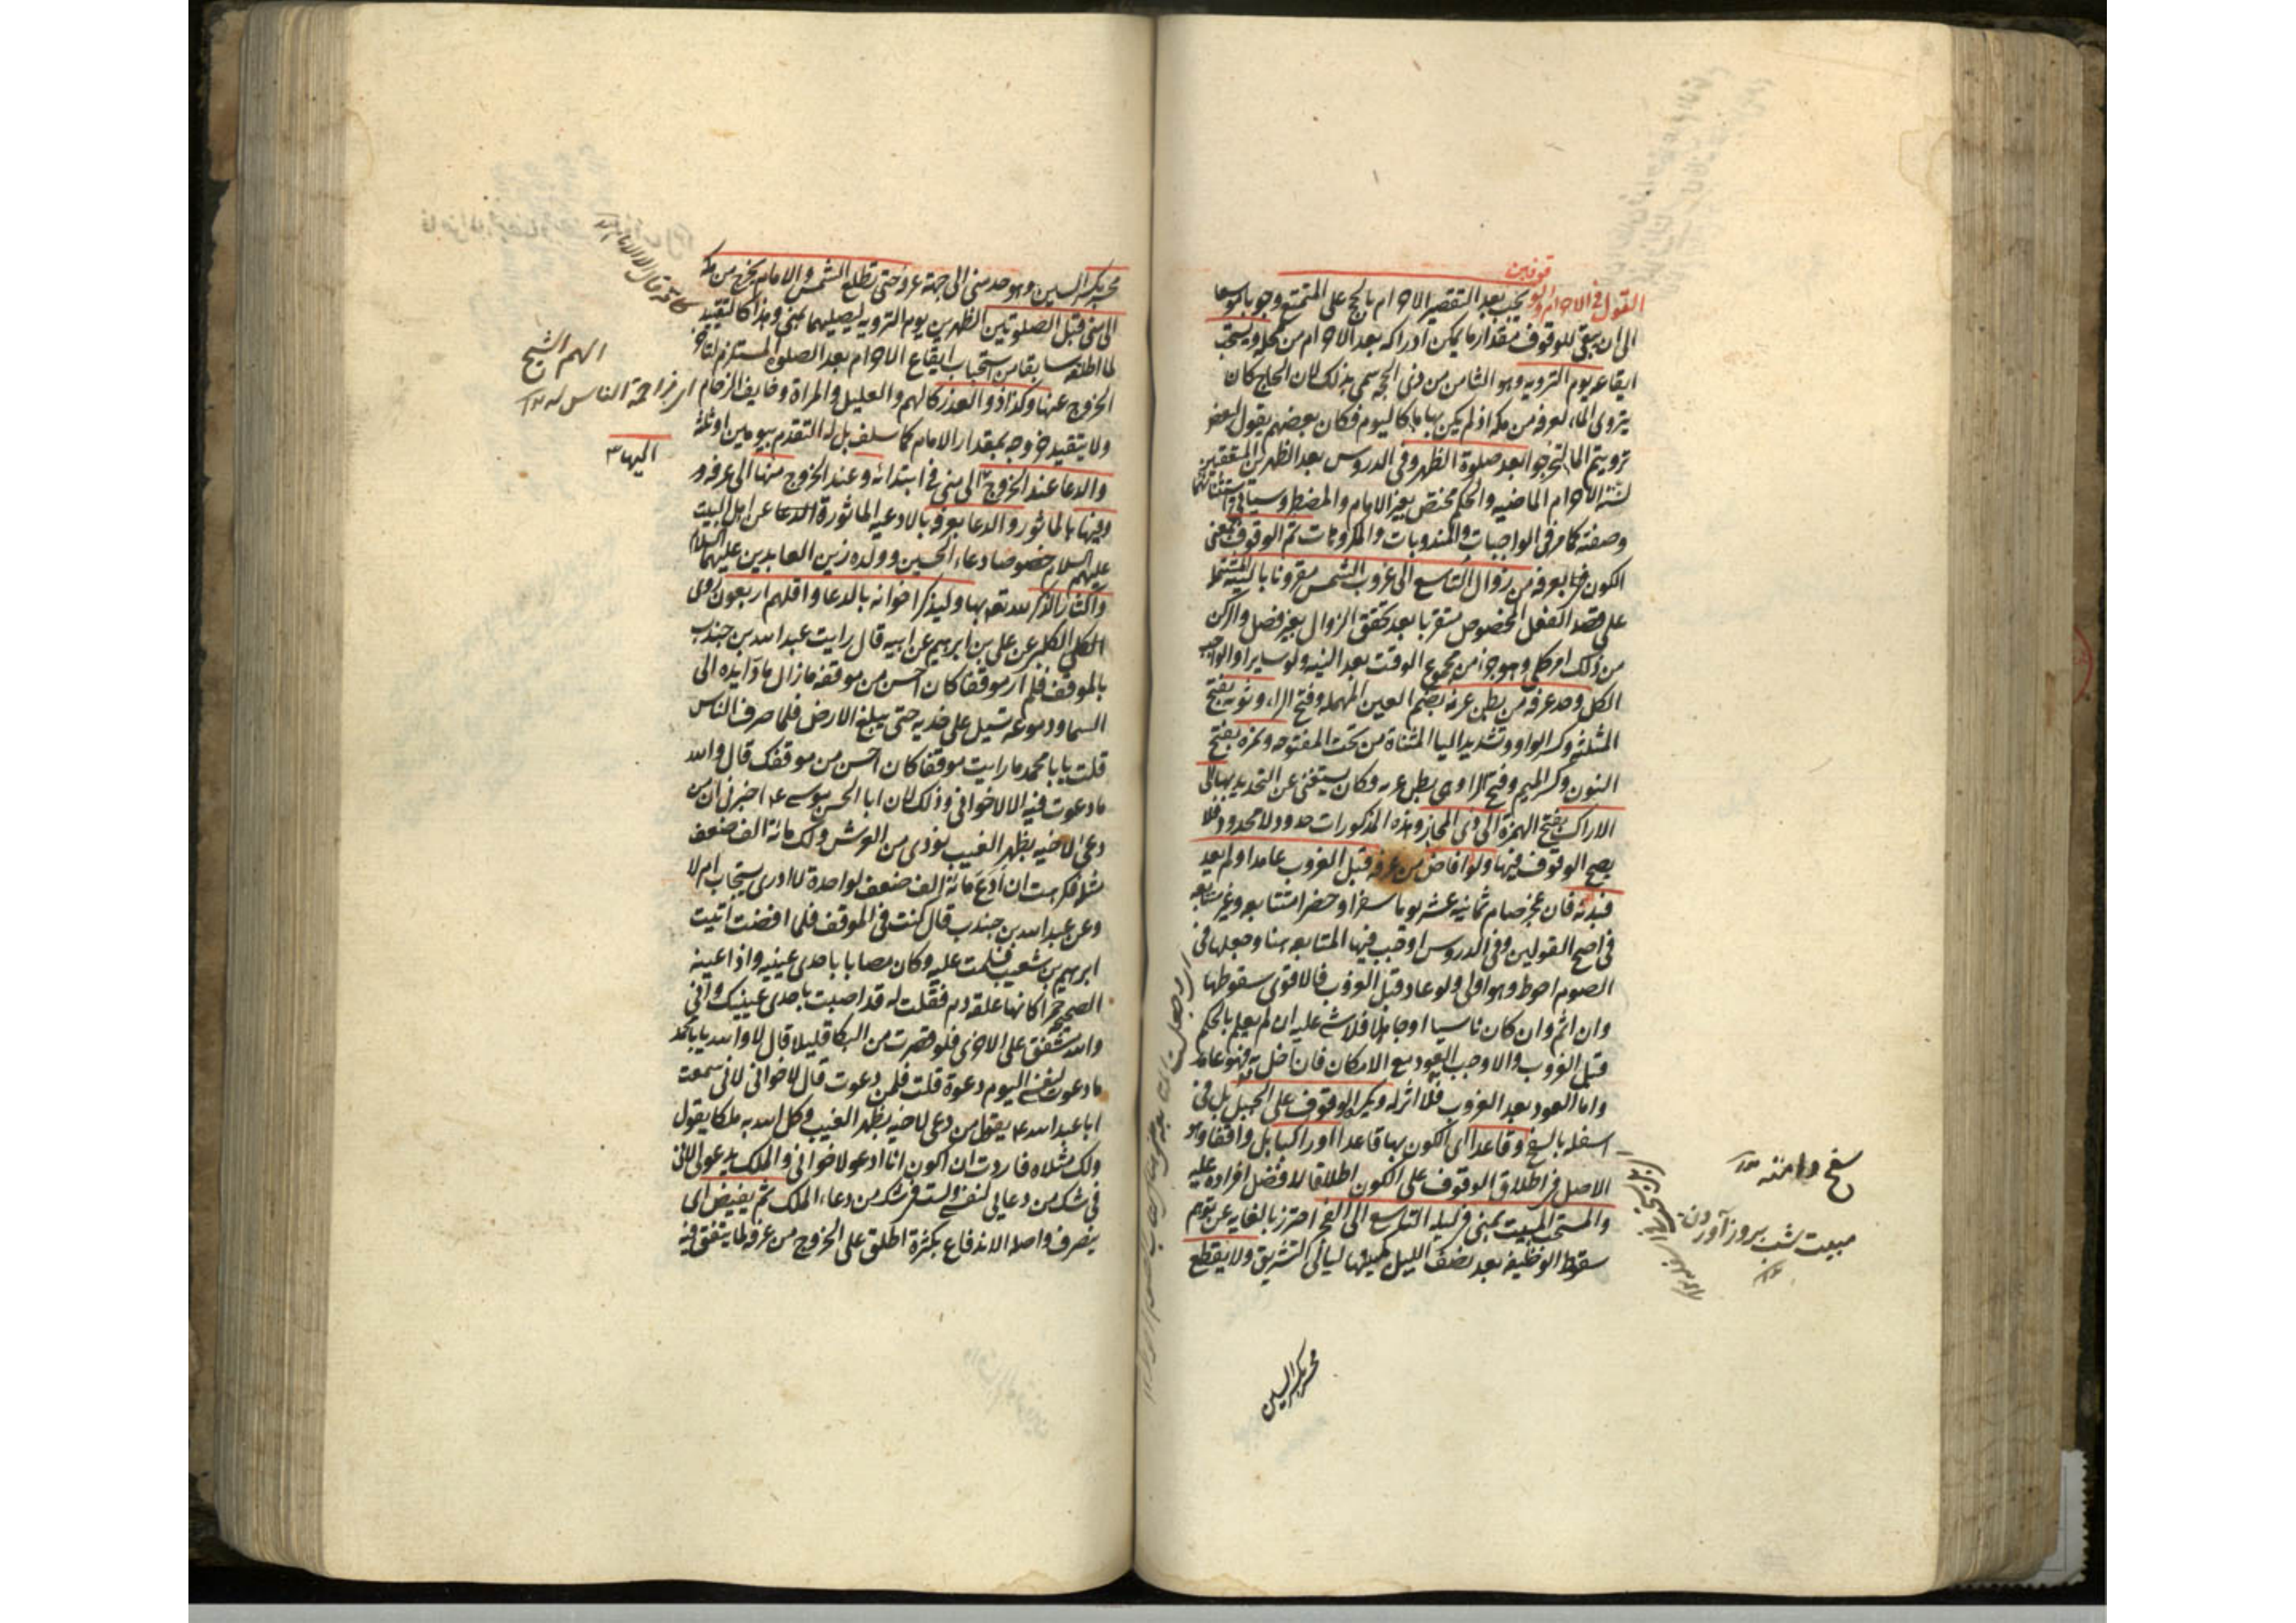 القول في الاحرام والوقوفين يجب بعد التقصير الاحرام بالحج على المتمتع وجوبا موسعا
الى ان يبقى للوقوف مقدار ما يمكن ادراكه بعد الاحرام من محله ويستحب
ايقاعه يوم الترويه وهو الثامن من ذى الحجه سمى بذلك لان الحاج كان
يتروى الماء لعرفه من مكه اذ لم يكن بها ماء كاليوم فكان بعضهم يقول لبعض
ترويتم الماء لتخرجوا بعد صلوة الظهر وفى الدروس بعد الظهرين المتعقبين
لسنة الاحرام الماضيه والحكم مختص بغير الامام والمضطر وسياتى استثنائهما
وصفته كما مر فى الواجبات والمندوبات والمكروهات ثم الوقوف بمعنى
الكون بعرفه من زوال التاسع الى غروب الشمس مقرونا بالنيه المشتمله
على قصد الفعل المخصوص متقربا بعد تحقق الزوال بغير فصل والركن
من ذلك امر كلى وهو جزء من مجموع الوقت بعد النيه ولو سايرا والواجب
الكل وحد عرفه من بطن عرنه بضم العين المهمله وفتح الراء وثويه بفتح
المثلثه وكسر الواو وتشديد الياء المثناة من تحت المفتوحه ونمره بفتح
النون وكسر الميم وفتح الراء وهى بطن عرنه وكان يستغنى عن التحديد بها الى
الاراك بفتح الهمزة الى ذى المجاز وهذه المذكورات حدود لا محدود فلا
يصح الوقوف فيها ولو افاض من عرفه قبل الغروب عامدا ولم يعد
فبدنه فان عجز صام ثمانيه عشر يوما سفرا وحضرا متتابعه وغير متتابعه
فى اصح القولين وفى الدروس اوجب فيها المتابعه هنا وجعلها فى
الصوم احوط وهو اولى ولو عاد قبل الغروب فالاقوى سقوطها
وان اثم وان كان ناسيا او جاهلا فلا شئ عليه ان لم يعلم بالحكم
قبل الغروب والا وجب العود مع الامكان فان اخل به فهو عامد
واما العود بعد الغروب فلا اثر له ويكره الوقوف على الجبل بل فى
اسفله بالسفح وقاعدا اى الكون بها قاعدا او راكبا بل واقفا وهو
الاصل فى اطلاق الوقوف على الكون اطلاقا لافضل افراده عليه
والمستحب المبيت بمنى ليله التاسع الى الفجر احترز بالغايه عن توهم
سقوط الوظيفه بعد نصف الليل كمبيتها ليالى التشريق ولا يقطع
سفح دامنه
مبيت شب بروز آوردن
محسر بكسر السين
محسر بكسر السين وهو حد منى الى جهة عرفه حتى تطلع الشمس والامام يخرج من مكه
الى منى قبل الصلوتين الظهرين يوم الترويه ليصليهما بمنى وهذا كالتقييد
لما اطلقه سابقا من استحباب ايقاع الاحرام بعد الصلوة المستلزم لتاخر
الخروج عنها وكذا ذو العذر كالهم والعليل والمراة وخايف الزحام
ولا يتقيد خروجه بمقدار الامام كما سلف بل له التقدم بيومين او ثلثه
والدعا عند الخروج الى منى فى ابتدائه وعند الخروج منها الى عرفه و
وفيها بالماثور والدعا بعرفه بالادعيه الماثورة عن اهل البيت
عليهم السلام خصوصا دعاء الحسين وولده زين العابدين عليهما السلام
واكثار الذكر لله تع بها وليذكر اخوانه بالدعا واقلهم اربعون روى
الكلينى عن على بن ابرهيم عن ابيه قال رايت عبد الله بن جندب
بالموقف فلم ار موقفا كان احسن من موقفه ما زال مادا يده الى
السما ودموعه تسيل على خديه حتى يبلغ الارض فلما صرف الناس
قلت يابا محمد ما رايت موقفا كان احسن من موقفك قال والله
ما دعوت فيه الا لاخوانى وذلك لان ابا الحسن موسى ع اخبرنى ان من
دعى لاخيه بظهر الغيب نودى من العرش ولك مائة الف ضعف
مثله فكرهت ان ادع مائة الف ضعف لواحدة لا ادرى يستجاب ام لا
وعن عبد الله بن جندب قال كنت فى الموقف فلما افضت اتيت
ابرهيم بن شعيب فسلمت عليه وكان مصابا باحدى عينيه واذا عينه
الصحيحه حمرا كانها علقه دم فقلت له قد اصبت باحدى عينيك وانى
والله مشفق على الاخرى فلو قصرت من البكا قليلا قال لا والله يابا محمد
ما دعوت لنفسى اليوم دعوة قلت فلمن دعوت قال لاخوانى لانى سمعت
ابا عبد الله ع يقول من دعى لاخيه بظهر الغيب وكل الله به ملكا يقول
ولك مثلاه فاردت ان اكون انا ادعو لاخوانى والملك يدعو لى لانى
فى شك من دعايى لنفسى ولست فى شك من دعاء الملك ثم يفيض اى
ينصرف واصله الاندفاع بكثرة اطلق على الخروج من عرفه لما يتفق فيه
الهم الشيخ
اى مزاحمة الناس له
اليها